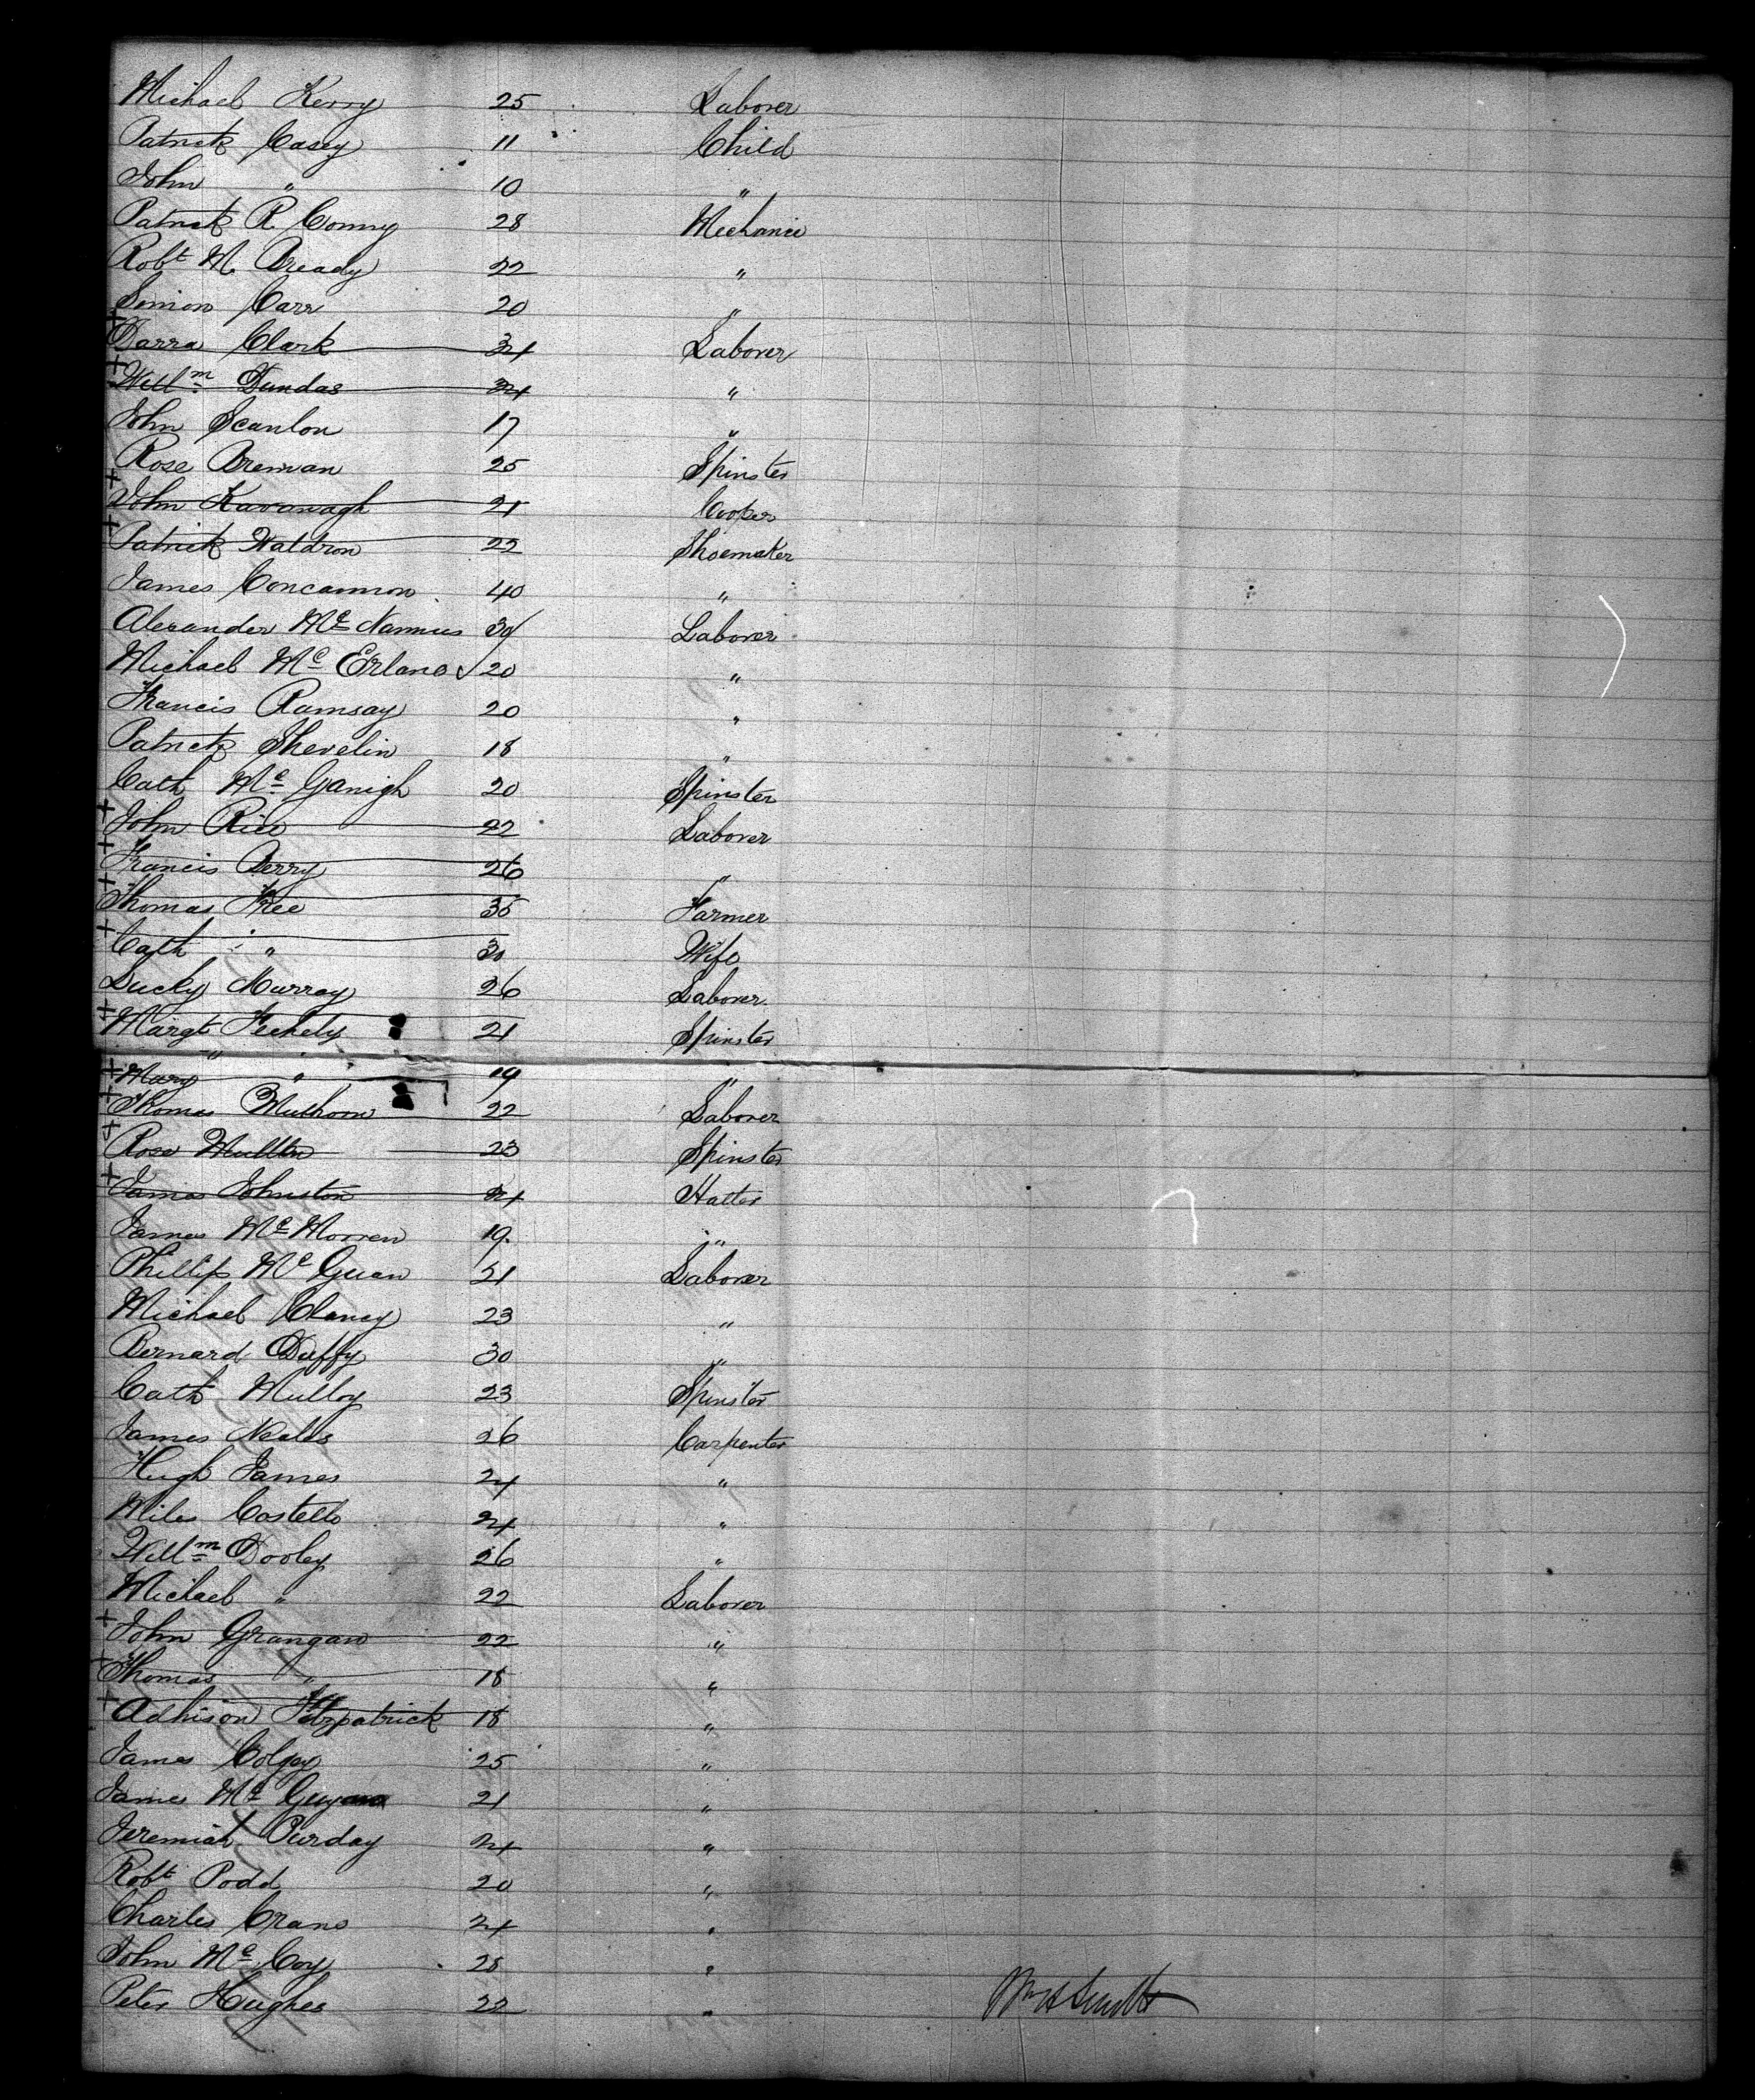 Michael Kerry 25 Laborer
Patrick Casey 11 Child
John " 10 "
Patrick R. Conny 28 Mechanic
Robt M. Bready 22 "
Simon Carr 20 "
+ Darra Clark 34 Laborer
+ Willm Dundas 24 "
John Scanlon 17 "
Rose Brennan 25 Spinster
+ John Kavanagh 21 Cooper
+ Patrick Waldron 22 Shoemaker
James Concannon 40 "
Alexander Mc 30 Laborer
Michael Mc Erlane 20 "
Francis Ramsay 20 "
Patrick Shevelin 18 "
Cath Mc Ganigh 20 Spinster
+ John Rice 22 Laborer
+ Francis Berry 26 "
+ Thomas Free 35 Farmer
+ Cath " 30 Wife
Lucky Murray 26 Laborer
+ Margt Feehely 21 Spinster
+ Mary " 19 "
+ Thomas 22 Laborer
+ Rose Mullen 23 Spinster
+ James Johnston 24 Hatter
James Mc Morren 19 "
Phillip Mc Guan 21 Laborer
Michael Clancy 23 "
Bernard Duffy 30 "
Cath Mulloy 23 Spinster
James Neales 26 Carpenter
Hugh James 24 "
Miles Costello 24 "
Willm Dooley 26 "
Michael " 22 Laborer
+ John Grangan 22 "
+ Thomas " 18 "
+ Adhison Fitzpatrick 18 "
James Colgay 25 "
James Mc 21 "
Jeremiah Purday 24 "
Robt Podd 20 "
Charles Crane 24 "
John Mc Coy 28 "
Peter Hughes 22 "